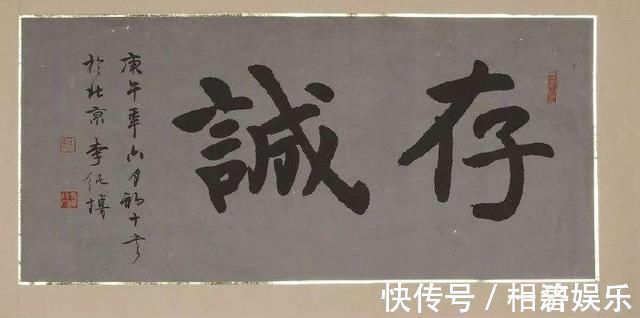 存誠
庚午年六月初十书
於北京李纯博
快传号/相碧娱乐